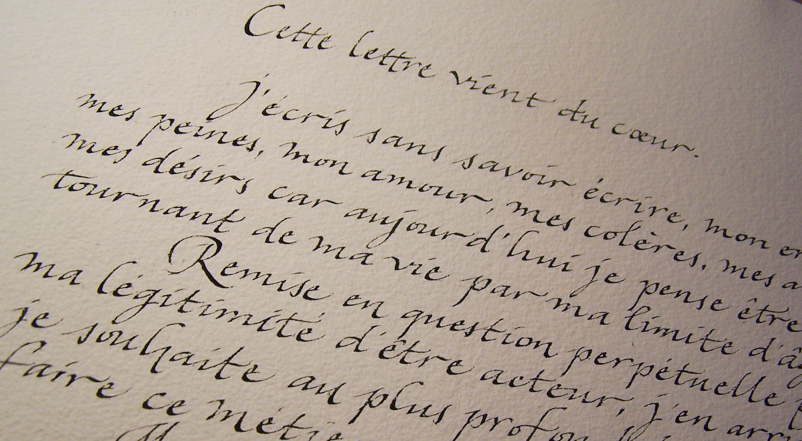 Cette lettre vient du cœur.
J'écris sans savoir écrire, mon
mes peines, mon amour, mes colères, mes
mes désirs car aujourd'hui je pense être
tournant de ma vie par ma limite
Remise en question perpétuelle
ma légitimité d'être acteur, j'en
je souhaite au plus
faire ce